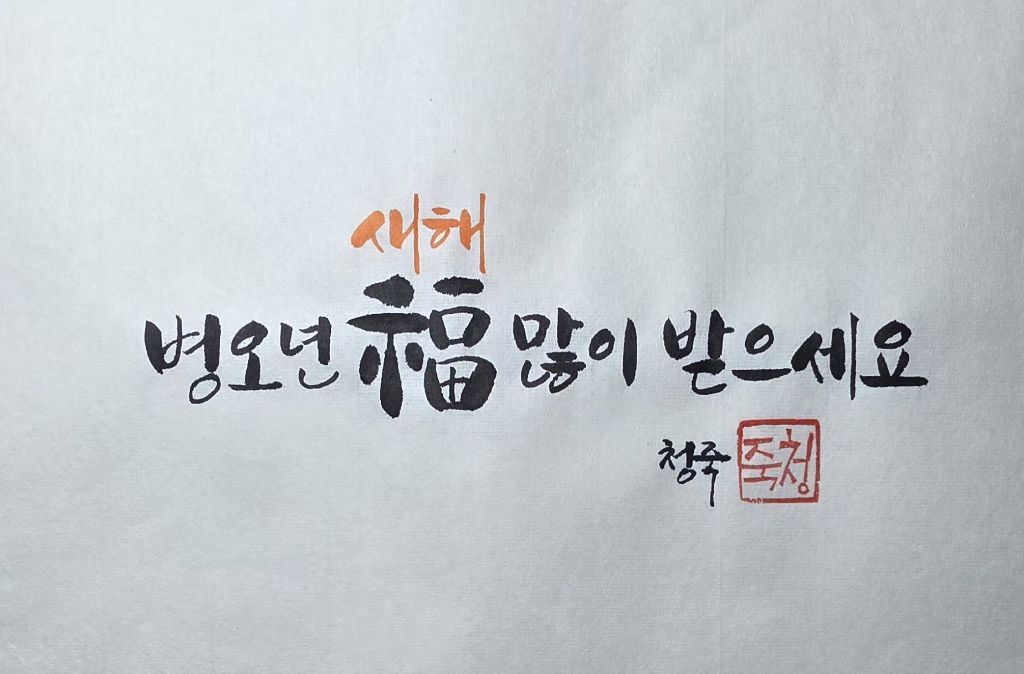 새해
병오년 福 많이 받으세요
청죽
죽청